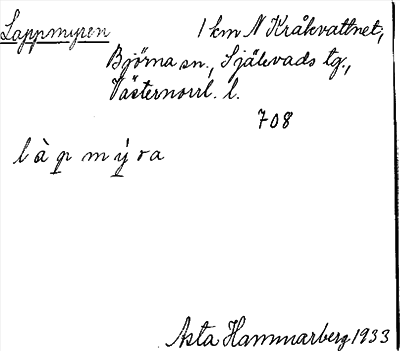 Lappmyren 1 km N Kråkvattnet,
Björna sn., Själevads tg.,
Västernorrl. l.
708
l à p̣ m ỵ́ r a
Asta Hammarberg 1933